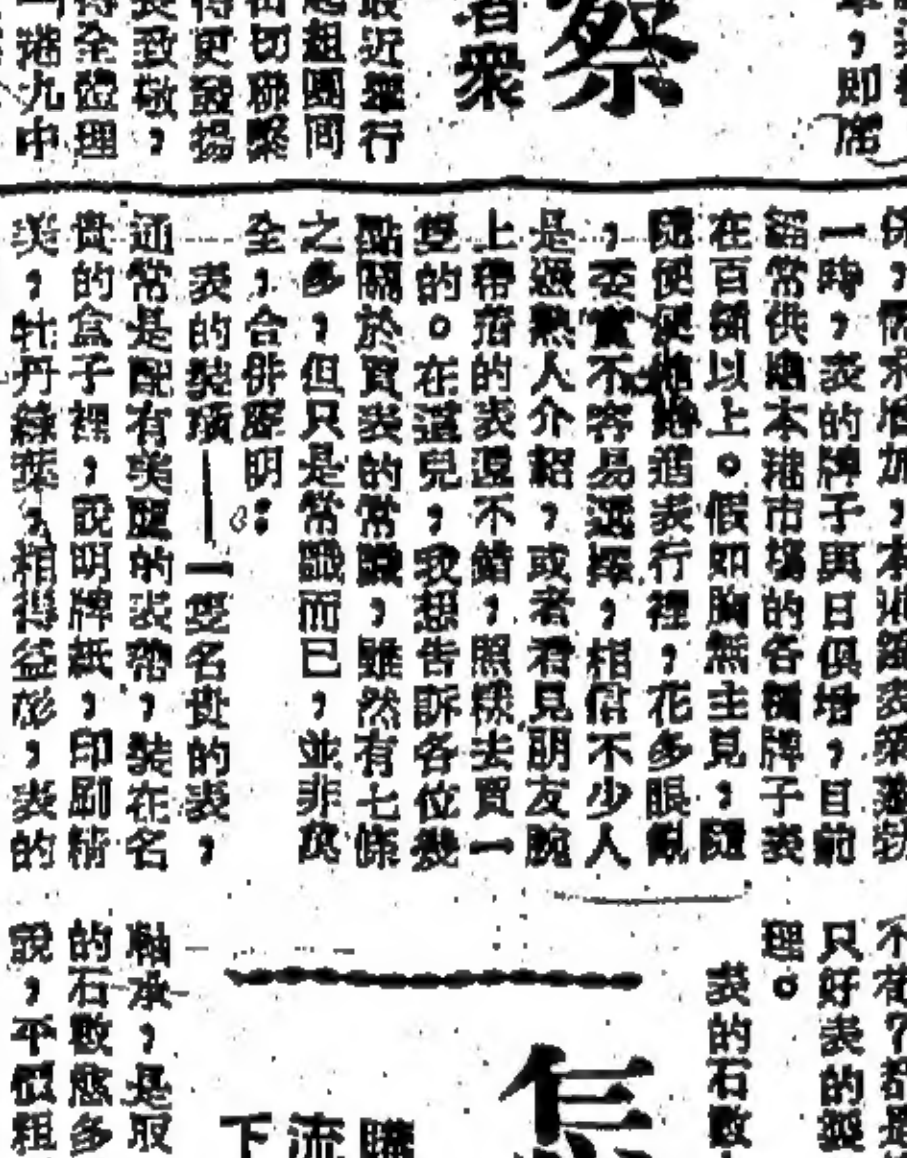 察
者衆
，即席
最近舉行
起組團同
切聯繫
得更發揚
長致敬，
得全體理
港九中
，需求增加，本港鐘表
一時，表的牌子與日俱增，目前
經常供應本港市場的各種牌子表
在百種以上。假如胸無主見，隨
隨便便地進表行裡，花多眼亂
，委實不容易選擇，相信不少人
是經熟人介紹，或者君見朋友腕
上帶着的表還不錯，照樣去買一
隻的。在這兒，我想告訴各位幾
點關於買表的常識，雖然有七條
之多，但只是常識而已，並非萬
全，合併聲明：
表的裝璜——一隻名貴的表，
通常是配有美麗的表帶，裝在名
貴的盒子裡，說明牌紙，印刷精
美，牡丹綠葉，相得益彰，表的
只好表的製
理。
表的石數
怎
購
流
下
軸承，是取
的石數愈多
說，不但粗